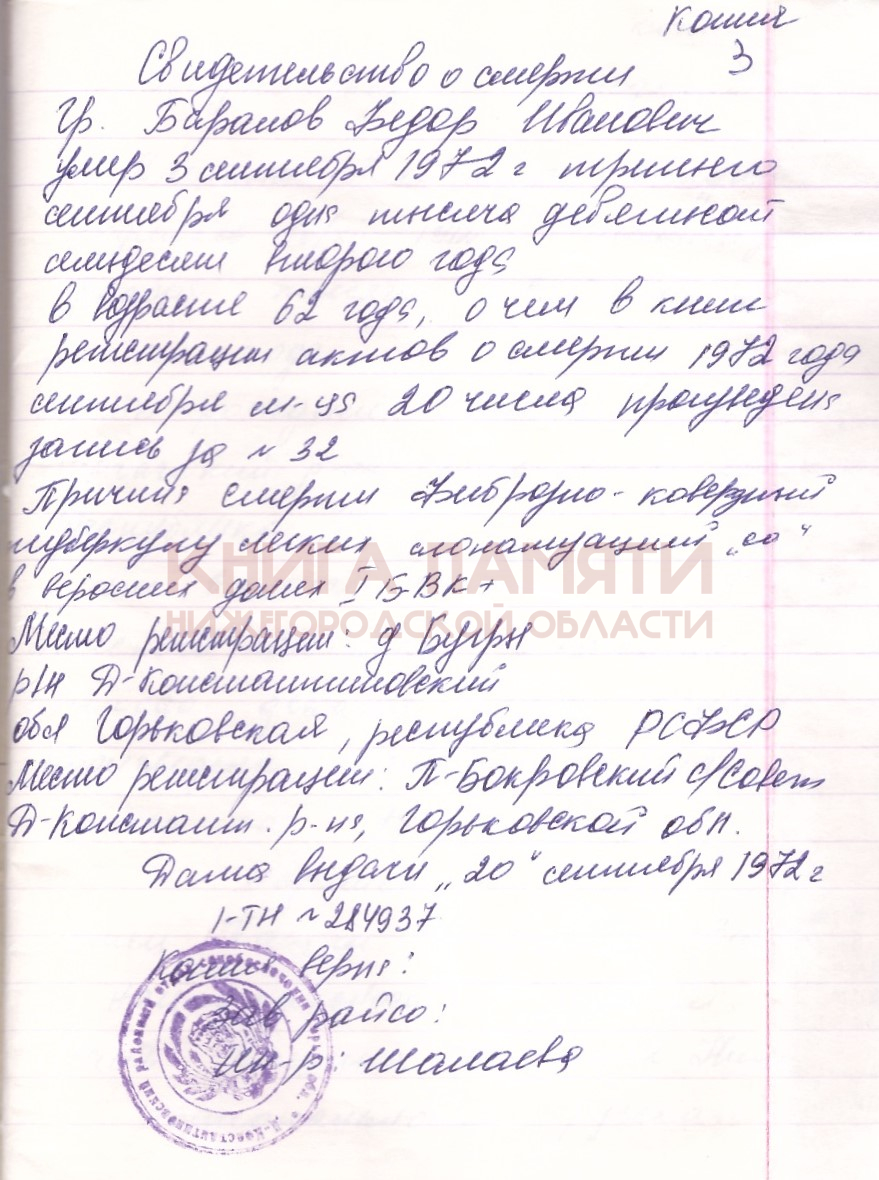 Копия
3
Свидетельство о смерти
Гр. Баранов Федор Иванович
умер 3 сентября 1972 г третьего
сентября одна тысяча девятисот
семдесят второго года
в возрасте 62 года, о чем в книге
регистрации актов о смерти 1972 года
сентября м-ца 20 числа произведена
запись за № 32
Причина смерти Фиброзно-каверзный
туберкулез легких
в верхних долях BK+
Место регистрации: д Бугры
р/н Д-Константиновский
обл Горьковская, республика РСФСР
Место регистрации: П-Покровский с/Совет
Д-Констант. р-на, Горьковской обл.
Дата выдачи „20" сентября 1972 г
I-ТН № 284937
Копия верна:
Зав райсо:
ин-р: Шалаева
КНИГА ПАМЯТИ
НИЖЕГОРОДСКОЙ ОБЛАСТИ